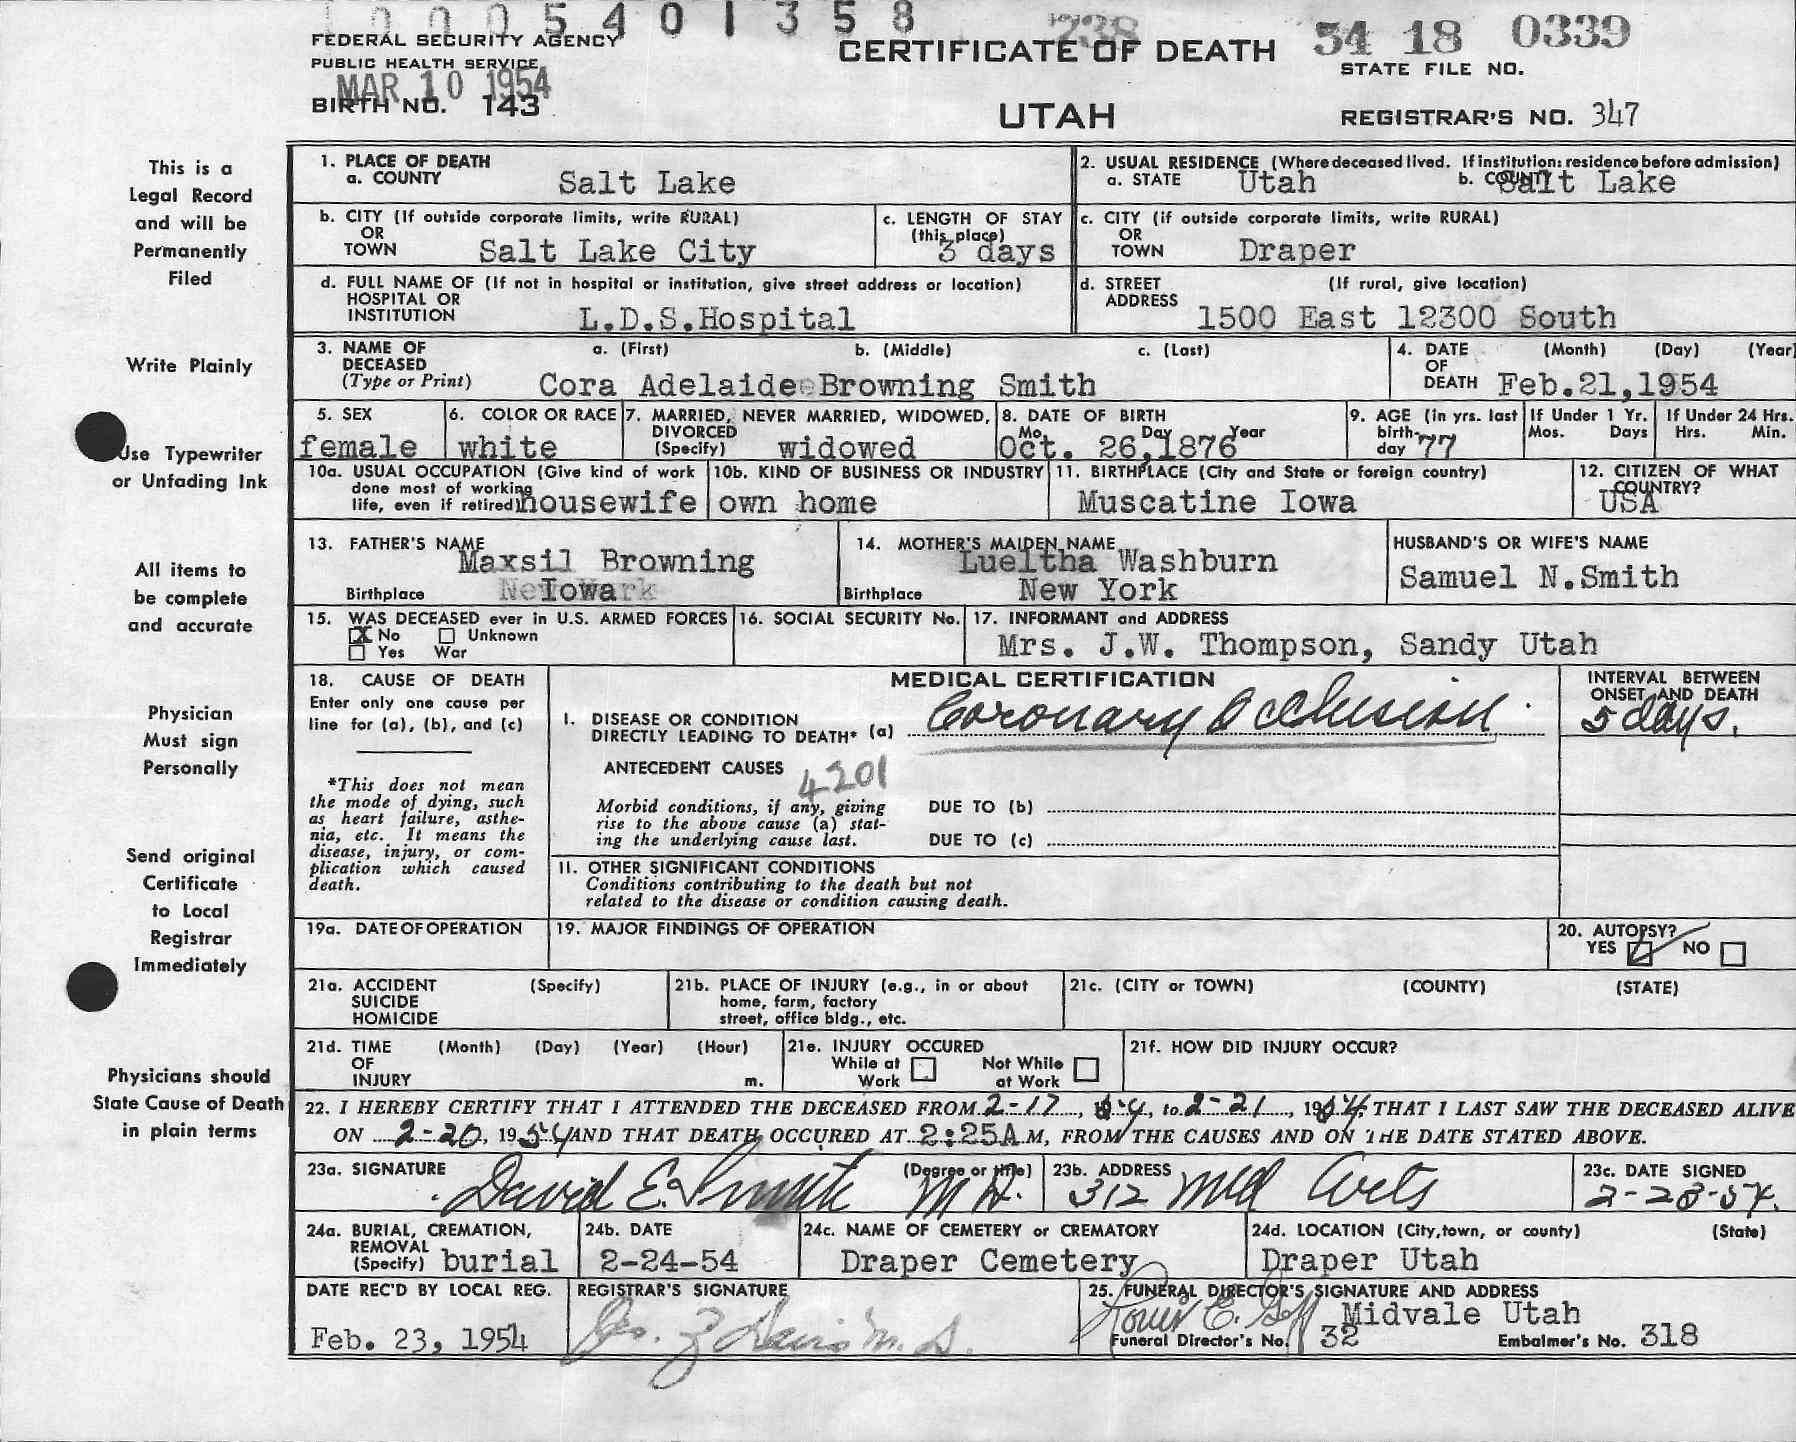 0 0 0 5 4 0 1 3 5 8
238
FEDERAL SECURITY AGENCY
PUBLIC HEALTH SERVICE
MAR 10 1954
BIRTH NO. 143
CERTIFICATE OF DEATH
UTAH
54 18 0339
STATE FILE NO.
REGISTRAR'S NO. 347
This is a
Legal Record
and will be
Permanently
Filed
Write Plainly
Use Typewriter
or Unfading Ink
All items to
be complete
and accurate
Physician
Must sign
Personally
Send original
Certificate
to Local
Registrar
Immediately
Physicians should
State Cause of Death
in plain terms
1. PLACE OF DEATH
a. COUNTY Salt Lake
2. USUAL RESIDENCE (Where deceased lived. If institution: residence before admission)
a. STATE Utah b. COUNTY Salt Lake
b. CITY (If outside corporate limits, write RURAL)
OR
TOWN Salt Lake City
c. LENGTH OF STAY
(this place)
3 days
c. CITY (if outside corporate limits, write RURAL)
OR
TOWN Draper
d. FULL NAME OF (If not in hospital or institution, give street address or location)
HOSPITAL OR
INSTITUTION L.D.S.Hospital
d. STREET (If rural, give location)
ADDRESS 1500 East 12300 South
3. NAME OF a. (First) b. (Middle) c. (Last)
DECEASED
(Type or Print) Cora Adelaide Browning Smith
4. DATE (Month) (Day) (Year)
OF
DEATH Feb.21,1954
5. SEX
female
6. COLOR OR RACE
white
7. MARRIED, NEVER MARRIED, WIDOWED,
DIVORCED
(Specify) widowed
8. DATE OF BIRTH
Mo. Day Year
Oct. 26,1876
9. AGE (in yrs. last
birth-
day 77
If Under 1 Yr.
Mos. Days
If Under 24 Hrs.
Hrs. Min.
10a. USUAL OCCUPATION (Give kind of work
done most of working
life, even if retired) housewife
10b. KIND OF BUSINESS OR INDUSTRY
own home
11. BIRTHPLACE (City and State or foreign country)
Muscatine Iowa
12. CITIZEN OF WHAT
COUNTRY?
USA
13. FATHER'S NAME
Maxsil Browning
Birthplace Iowa
14. MOTHER'S MAIDEN NAME
Lueltha Washburn
Birthplace New York
HUSBAND'S OR WIFE'S NAME
Samuel N.Smith
15. WAS DECEASED ever in U.S. ARMED FORCES
X No Unknown
Yes War
16. SOCIAL SECURITY No.
17. INFORMANT and ADDRESS
Mrs. J.W. Thompson, Sandy Utah
18. CAUSE OF DEATH
Enter only one cause per
line for (a), (b), and (c)
*This does not mean
the mode of dying, such
as heart failure, asthe-
nia, etc. It means the
disease, injury, or com-
plication which caused
death.
MEDICAL CERTIFICATION
I. DISEASE OR CONDITION
DIRECTLY LEADING TO DEATH* (a) Coronary Occlusion.
ANTECEDENT CAUSES
4201
Morbid conditions, if any, giving
rise to the above cause (a) stat-
ing the underlying cause last.
DUE TO (b)
DUE TO (c)
II. OTHER SIGNIFICANT CONDITIONS
Conditions contributing to the death but not
related to the disease or condition causing death.
INTERVAL BETWEEN
ONSET AND DEATH
5 days.
19a. DATE OF OPERATION
19. MAJOR FINDINGS OF OPERATION
20. AUTOPSY?
YES NO
21a. ACCIDENT (Specify)
SUICIDE
HOMICIDE
21b. PLACE OF INJURY (e.g., in or about
home, farm, factory
street, office bldg., etc.
21c. (CITY or TOWN) (COUNTY) (STATE)
21d. TIME (Month) (Day) (Year) (Hour)
OF
INJURY m.
21e. INJURY OCCURED
While at Work Not While at Work
21f. HOW DID INJURY OCCUR?
22. I HEREBY CERTIFY THAT I ATTENDED THE DECEASED FROM 2-17, 54, to 2-21, 1954, THAT I LAST SAW THE DECEASED ALIVE
ON 2-20, 1954 AND THAT DEATH OCCURED AT 2:25A.M, FROM THE CAUSES AND ON THE DATE STATED ABOVE.
23a. SIGNATURE (Degree or title)
David E. Smith M.D.
23b. ADDRESS
312 Med Arts
23c. DATE SIGNED
2-23-54.
24a. BURIAL, CREMATION,
REMOVAL
(Specify) burial
24b. DATE
2-24-54
24c. NAME OF CEMETERY or CREMATORY
Draper Cemetery
24d. LOCATION (City, town, or county) (State)
Draper Utah
DATE REC'D BY LOCAL REG.
Feb. 23, 1954
REGISTRAR'S SIGNATURE
25. FUNERAL DIRECTOR'S SIGNATURE AND ADDRESS
Louis E. Goff Midvale Utah
Funeral Director's No. 32 Embalmer's No. 318